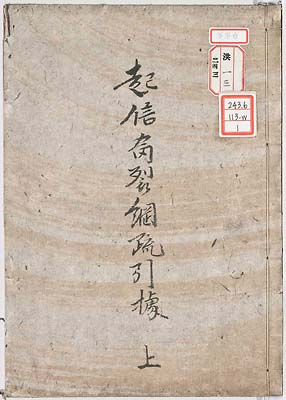 起信論裂網疏引據 上
洪 一 三
243.6
113-W
1